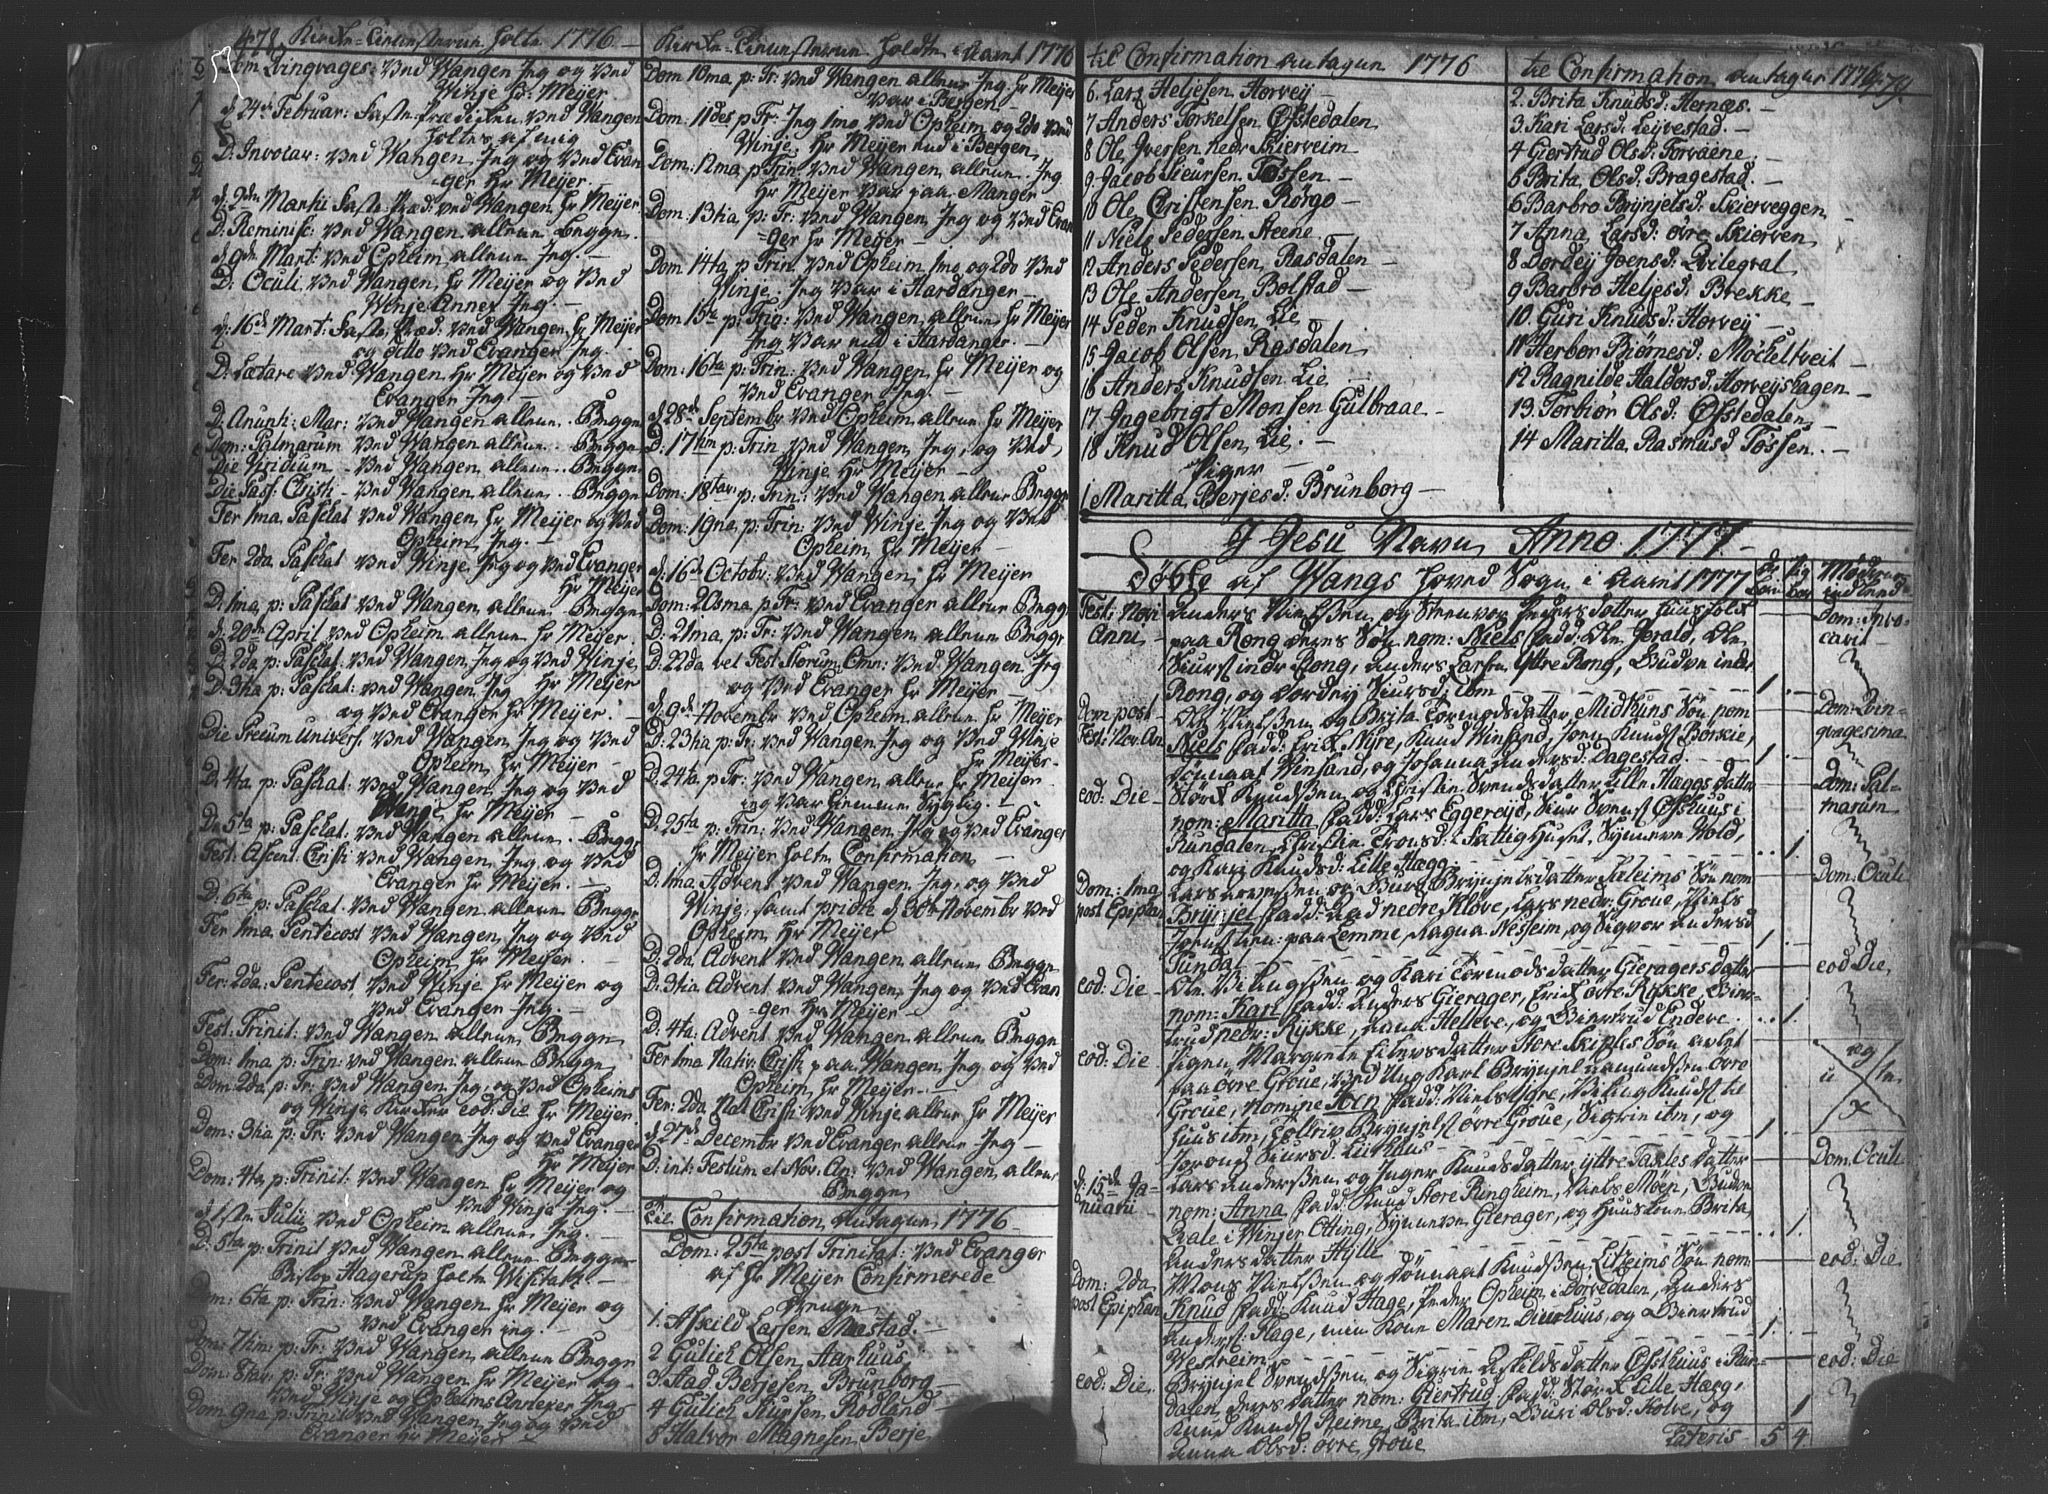 478. Kirke-Tienesterne holte 1776
Dom Qvingvages: Ved Wangen Jeg og Ved
Winje Hr Meyer
d 24de Februar: Faste Prædiken Ved Wangen
holtes af mig
D: Invocav: Ved Wangen Jeg og Ved Evan
ger Hr Meijer.
d. 2den Martii Faste Præd: Ved Wangen Hr Meijer
D. Reminisc: Ved Wangen allene Begge.
d. 9de Mart: Ved Opheim allene Jeg. –
D. Oculi Ved Wangen Hr Meijer og Ved
Winje Annex Jeg –
d: 16de Mart: Faste Præd: Ved Wangen Hr Meijer
og ditto Ved Evanger Jeg.
D. Lætare Ved Wangen Hr Meijer og Ved
Evanger Jeg –
D. Anunti: Mar: Ved Wangen allene. Begge
Dom: Palmarum Ved Wangen allene. – Begge
Die Viridium – Ved Wangen allene. Begge
Die Pass: Cristi – Ved Wangen allene. Begge
Fer 1ma Paschat Ved Wangen Hr Meijer og Ved
Opheim Jeg. –
Fer 2da Paschat Ved Winje Jeg og Ved Evanger
Hr Meijer
D: 1ma p: Paschat Ved Wangen allene Begge
d: 20de April Ved Opheim allene Hr Meijer.
D. 2da p: Paschat: Ved Wangen Jeg og Ved Winje
Hr Meijer
D: 3tia p: Paschat: Ved Wangen Jeg
og Ved Evanger Hr Meijer. –
Die Precum Univers: Ved Wangen Jeg og Ved
Opheim Hr Meijer –
D: 4ta p: Paschat: Ved Wangen Jeg og Ved
Hr Meijer –
D: 5ta p: Paschat: Ved Wangen allene. Begge
Fest. Ascent. Cristi Ved Wangen Jeg og Ved
Evanger Hr Meijer. –
D: 6ta p: Paschat Ved Wangen allene Begge
Fer 1ma Pentecost Ved Wangen Jeg og Ved
Opheim Hr Meijer. –
Fer: 2da. Pentecost. Ved Winje Hr Meijer og
Ved Evanger Jeg. –
Fest. Trinit: Ved Wangen allene Begge
Dom: 1ma p: Trin: Ved Wangen allene Begge
Dom: 2da p: Tr: Ved Wangen Jeg, og Ved Opheims
og Winje Kirker eod: Die Hr Meijer.
Dom: 3tia p: Tr: Ved Wangen Jeg og Ved Evanger
Hr Meijer
Dom: 4ta p: Trinit: Ved Wangen Hr Meijer og
Ved Winje Jeg –
d 1sten Julii Ved Opheim allene Jeg. –
D: 5ta p: Trinit Ved Wangen allene Begge
Biskop Hagerup holte Visitatz –
Dom: 6ta p: Trin: Ved Wangen Hr Meijer og
Ved Evanger jeg. –
Dom: 7tim: p: Tr: Ved Wangen allene Begge
Dom: 8tav: p: Tr: Ved Wangen Hr Meijer og
Ved Winje og Opheims Annexer Jeg
Dom: 9na p: Trinit Ved Wangen Jeg og Ved
Evanger Hr Meijer –
Kirke-Tienesterne holdte i Aaret 1776
Dom 10ma p: Tr: Ved Wangen allene Jeg. Hr Meijer
Var i Bergen –
Dom: 11des p: Tr: Jeg 1mo Ved Opheim og 2do Ved
Winje. Hr Meijer end i Bergen
Dom: 12ma p Trin: Ved Wangen allene. Jeg
Hr Meijer Var paa Manger –
Dom: 13tia p: Tr: Ved Wangen Jeg og Ved Evan
ger Hr Meijer –
Dom 14ta p Trin: Ved Opheim 1mo og 2do Ved
Winje. Jeg Var i Hardanger –
Dom: 15ta p: Trin: Ved Wangen allene Hr Meijer
Jeg Var end i Hardanger. –
Dom: 16ta p: Trin: Ved Wangen Hr Meijer og
Ved Evanger Jeg. –
d 28de Septembr Ved Opheim allene Hr Meijer
D. 17tim p: Trin: Ved Wangen Jeg, og Ved
Winje Hr Meijer –
Dom: 18tav: p: Trin: Ved Wangen allene Begge
Dom: 19na p: Trin: Ved Winje Jeg og Ved
Opheim Hr Meijer –
d. 16de Octobr: Ved Wangen Hr Meijer
Dom: 20sma p Tr: Ved Evanger allene Begge
D: 21ma p: Tr: Ved Wangen allene Begge
D. 22da vel Fest Storum Omn: Ved Wangen Jeg
og Ved Evanger Hr Meijer –
d. 9de Novembr Ved Opheim allene Hr Meijer
D. 23tia p: Tr: Ved Wangen Jeg og Ved Winje
Hr Meijer –
D. 24ta p: Tr: Ved Wangen allene Hr Meijer
jeg Var hiemme Sygelig. –
D. 25ta p: Trin: Ved Wangen Jeg og Ved Evanger
Hr Meijer holte Confirmation –
D. 1ma Advent Ved Wangen Jeg, og Ved
Winje, samt pridie d 30te Novembr Ved
Opheim Hr Meijer
D. 2da Advent Ved Wangen allene Begge
D. 3tia Advent Ved Wangen Jeg og Ved Evan
ger Hr Meijer –
D. 4ta. Advent Ved Wangen allene Begge
Fer 1ma Nativ Cristi paa Wangen Jeg og Ved
Opheim Hr Meijer –
Fer: 2da Nat Cristi Ved Winje allene Hr Meijer
d 27de Decembr Ved Evanger allene Jeg –
D. int: Festum et Nov. An: Ved Wangen allene
Begge
Til Confirmation Antagne 1776
Dom: 25ta post Trinitat: Ved Evanger
af Hr Meijer Confirmerede
Drenge
1. Askild Larsen Mestad. –
2 Gulich Olsen Aarhuus
3. Aad Berjesen Brunborg –
4 Gulich Siursen Rodland –
5 Halvor Magnesen Berje
til Confirmation antagne 1776
6. Lars Heljesen Horvey –
7 Anders Torkelsen Øfstedalen
8 Ole Iversen nedr Skierveim
9. Jacob Sieursen Tøssen. –
10 Ole Cristensen Rørgo –
11 Niels Pedersen Steene –
12 Anders Pedersen Rasdalen –
13 Ole Andersen Bolstad –
14 Peder Knudsen Lie –
15 Jacob Olsen Rasdalen
16 Anders Knudsen Lie –
17 Ingebrigt Monsen Gulbraae –
18 Knud Olsen Lie. –
Piger –
1 Maritta Berjesd: Brunborg –
til Confirmation antagne 1776 479.
2. Brita Knudsd: Hernæs. –
3. Kari Larsd: Leijvestad. –
4 Giertrud Olsd: Horvaene. –
5 Brita Olsd: Bragestad. –
6 Barbro Brynjelsd: Skierveggen
7 Anna Larsd: øvre Skierven
8 Dordey Joensd: Qvilegral –
9 Barbro Heljesd: Brekke –
10. Guri Knudsd: Horvey –
11 Herbor Biørnesd: Møckeltveit –
12 Ragnilde Haldorsd: Horveyshagen –
13. Torbiør Olsd: Øfstedalen –
14 Maritta Rasmusd Tøssen. –
I Jesu Navn Anno. 1777 –
Døbte af Wangs Hoved Sogn i Aaret 1777
Fest: Novi Anni –
Anders Nielssen og Steenvor Peders datter huusfolk
paa Rong deres Søn nom: Niels fadd: Ole Jerald, Ole
Siurs: indr Rong, Anders Larsen Yttre Rong, Gudve indr
Rong, og Dordey Siursd: ibm – 1. –
Dom: Invocavit
Dom post Fest: Nov. An
Ole Nielssen og Brita Tormods datter Midtuns Søn nom
Niels fadd: Erick Nyre, Knud Winsand, Joen Knuds: Børkie,
Dønnaat Winsand, og Johanna Andersd: Dagestad. – 1. –
Dom: Qvinqvagesima
eod: Die –
Størk Knudssen og Christie Svends datter Lille Hages datter
nom: Maritta fadd: Lars Eggereid, Siur Svens: Østhuus i
Rundalen, Christie Tronsd: i Fattighuset, Synneve Wold,
og Kari Knudsd: Lille Hægg – 1.
Dom: Palmarum
Dom: 1ma post Epiphan
Lars Iverssen og Guri Brynjels datter Saleims Søn nom
Brynjel fadd: Aad nedre Kløve, Lars nedr: Groue, Niels
Joens: tien: paa Lemme, Ragna Nesheim, og Sigvor Andersd
Tunda – 1.
Dom: Oculi
eod: Die –
Ole Vikingssen og Kari Tormods datter Gieragers datter
nom: Kari fadd: Anders Gierager, Erick øvre Rykke, Gier-
trud nedr: Rykke, Anna Helleve, og Giertrud Endeve. – 1
eod Die,
eod: Die
Pigen Margrete Eilers datter Store Skiples Søn avlet
paa øvre Groue, Ved Ung Karl Brynjel Aamundssen øvre
Groue, nomine Aen fadd: Niels Igre, Viking Knuds: til
huus ibm, Tolleiv Brynjels: øvre Groue, Sigrie ibm, og
Jorond Siursd: Liirhuus – 1.
d: 15de Januarii
Lars Anderssen og Inger Knuds datter yttre Tackles datter
nom: Anna fadd: Knud Store Ringheim, Niels Møen, Gudve
Qvale i Winjer Otting, Synneve Gierager, og Huuskone Brita
Anders datter Hylle – 1.
Dom: Oculi
Dom: 2da post Epiphan
Mons Nielssen og Dønnaat Knudssen Eitreims Søn nom:
Knud fadd: Knud Hage, Peder Opheim i Dørredalen, Anders
Anders: Flage, min Kone Maren Dierhuus, og Giertrud
Westreim – 1. –
eod: Die
eod: Die.
Brynjel Svendssen og Sigrie Askilds datter Østhuus i Run-
dalen, deres datter nom: Giertrud fadd: Størk Lille Hægg,
Knud Knuds: Reime, Brita ibm, Guri Olsd: Kolve, og
Anna Olsd: øvre Groue 1
eod: Die
Lateris 5 4